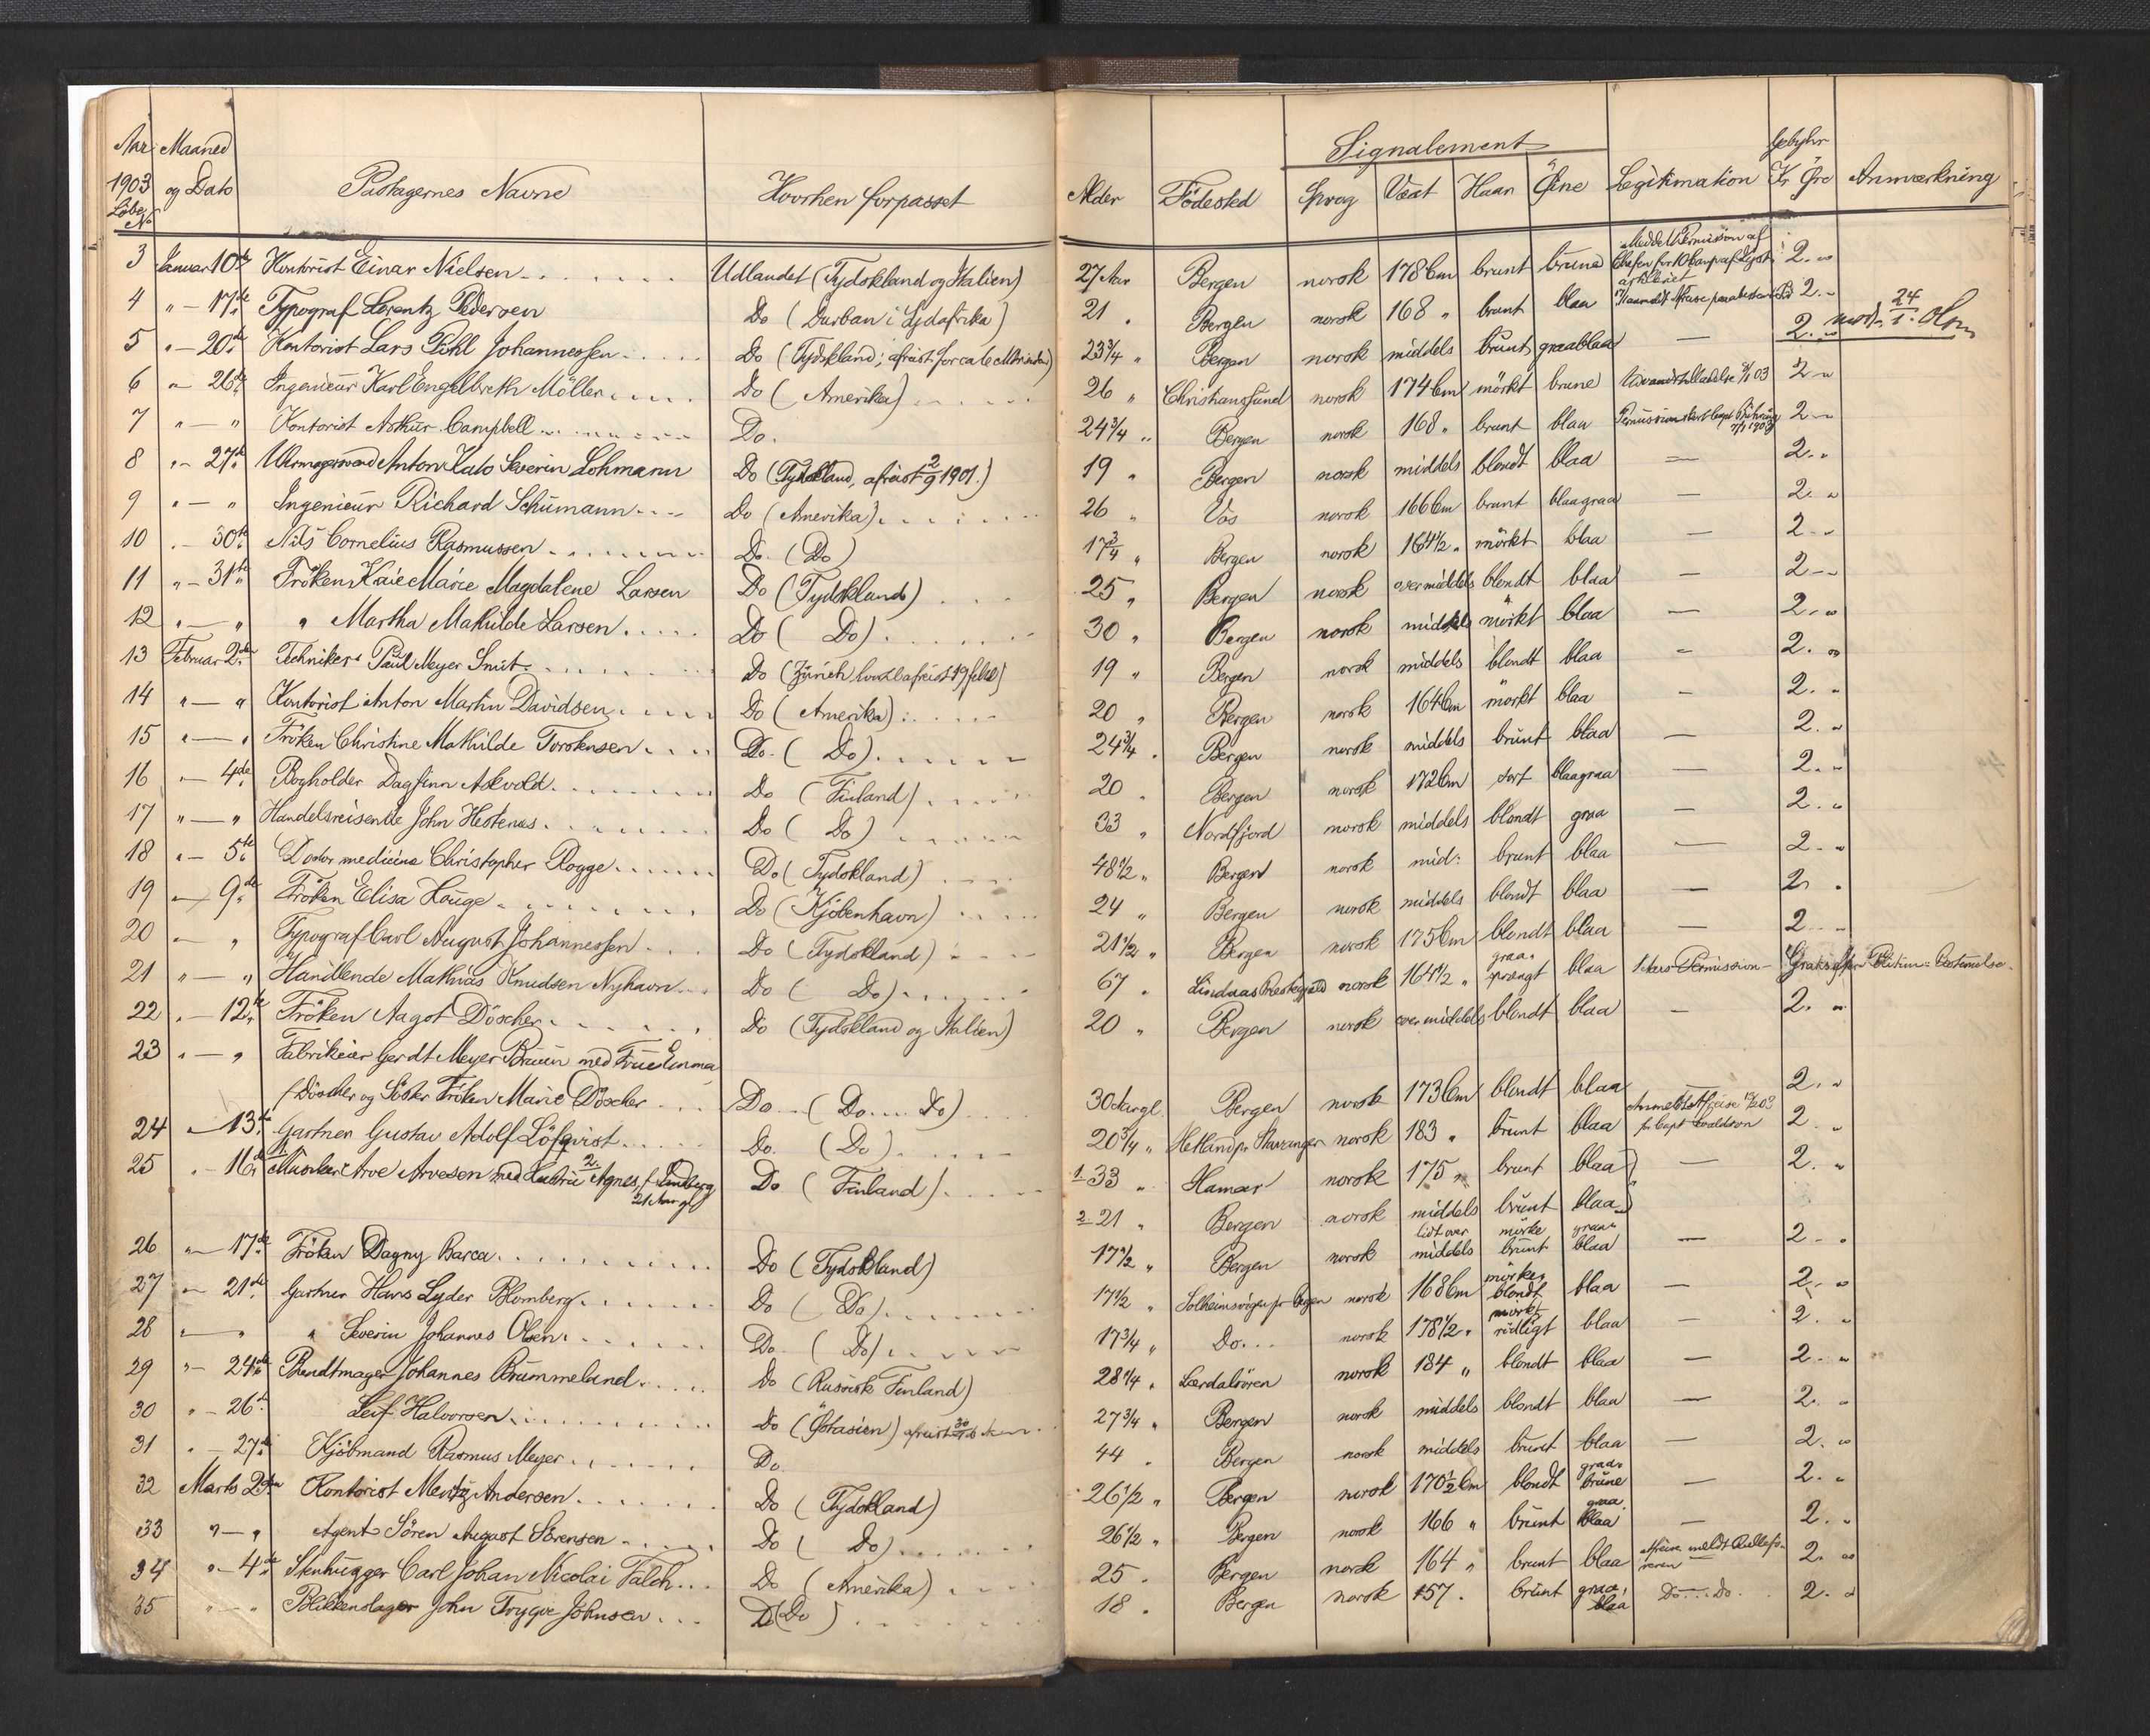 Aar Maaned
1903 og Dato Pastagernes Navne Hvorhen forpasset Alder Födested Signalement Sprog Vext Haar Öine Legitimation Gebyhr Kr Öre Anmærkning
Löbe No
3 Januar 10de Kontorist Einar Nielsen Udlandet (Tydskland og Italien) 27 Aar Bergen norsk 178 Cm brunt brune Meddelt Permission af Chefen for 2. "
4 " — 17de Typograf Lorentz Pedersen Do (Durban i Sydafrika) 21 " Bergen norsk 168 " brunt blaa 2. "
5 " — 20de Kontorist Lars Pihl Johannessen Do (Tydskland; afreist for ca 6 Mdr siden) 23 3/4 " Bergen norsk middels brunt graablaa — 2. " 24/1
6 " — 26de Ingeniør Karl Engelbreth Möller Do (Amerika) 26 " Christianssund norsk 174 Cm mörkt brune 2 "
7 " — " Kontorist Arthur Campbell Do. 24 3/4 " Bergen norsk 168 " brunt blaa 2 "
8 " — 27de Uhrmagersvend Anton Kato Severin Lohmann Do (Tydskland, afreist 2/9 1901.) 19 " Bergen norsk middels blondt blaa — 2. "
9 " — " Ingenieur Richard Schumann Do (Amerika) 26 " Vos norsk 166 Cm brunt blaagraa — 2. "
10 " — 30te Nils Cornelius Rasmussen Do. (Do) 17 3/4 " Bergen norsk 164 1/2 " mörkt blaa — 2 - "
11 " — 31te Fröken Kaie Marie Magdalene Larsen Do (Tydskland) 25 " Bergen norsk overmiddels blondt blaa — 2 - "
12 " — " " Martha Mathilde Larsen Do (Do) 30 " Bergen norsk middels mörkt blaa — 2. "
13 Februar 2den Tekniker Paul Meyer Smit Do (Zürich 19 " Bergen norsk middels blondt blaa - 2. "
14 " — " Kontorist Anton Martin Davidsen Do (Amerika) 20 " Bergen norsk 164 Cm mörkt blaa - 2. "
15 " — " Fröken Christine Mathilde Torstensen Do. (Do) 24 3/4 " Bergen norsk middels brunt blaa — 2. "
16 " — 4de Bogholder Dagfinn Askvold Do (Finland) 20 " Bergen norsk 172 Cm sort blaagraa — 2. "
17 " — " Handelsreisende John Hestenes Do (Do) 33 " Nordfjord norsk middels blondt graa — 2. "
18 " — 5te Doctor medicine Christopher Rogge Do (Tydskland) 48 1/2 " Bergen norsk mid: brunt blaa — 2. "
19 " — 9de Fröken Elisa Houge Do (Kjöbenhavn) 24 " Bergen norsk middels blondt blaa — 2 "
20 " " Typograf Carl August Johannessen Do (Tydskland) 21 1/2 " Bergen norsk 175 Cm blondt blaa — 2 "
21 " — " Handlende Mathias Knudsen Nyhavn Do (Do) 67 " Lindaas Præstegjeld norsk 164 1/2 " graasprængt blaa Permission Gratis
22 " — 12te Fröken Aagot Döscher Do (Tydskland og Italien) 20 " Bergen norsk over middels blondt blaa — 2. "
23 " — " Fabrikeier Gerdt Meyer Bruun med Frue Emma
f Döscher og Söster Fröken Marie Döscher Do (Do Do) 30 Aar gl. Bergen norsk 173 Cm blondt blaa 2. "
24 " 13de Gartner Gustav Adolf Löfqvist Do. (Do) 20 3/4 " Hetland pr Stavanger norsk 183 " brunt blaa Anmeldt Afreise 2. "
25 " — 16de Musiker Arve Arvesen med Hustru Agnes f Lindberg Do (Finland) 1 33 " Hamar norsk 175 " brunt blaa — 2. "
21 Aar gl 2 21 " Bergen norsk middels brunt blaa
26 " — 17de Fröken Dagny Barca Do (Tydskland) 17 1/2 " Bergen norsk lidt over middels mörke brunt graa blaa — 2 - "
27 " — 21de Gartner Hans Lyder Blomberg Do (Do) 17 1/2 " Solheimsvigen pr Bergen norsk 168 Cm mörker blondt blaa — 2. "
28 " — " " Severin Johannes Olsen Do. (Do) 17 3/4 " Do... norsk 178 1/2 " mörkt rödligt blaa — 2. "
29 " — 24de Bundtmager Johannes Brummeland Do (Russisk Finland) 28 1/4 " Lærdalsören norsk 184 " blondt blaa — 2 - "
30 " — 26de Leif Halvorsen Do (Östasien) 27 3/4 " Bergen norsk middels blondt blaa — 2. "
31 " — 27de Kjöbmand Rasmus Meyer Do 44 " Bergen norsk middels brunt blaa — 2. "
32 Marts 2den Kontorist Mentz Andersen Do (Tydskland) 26 1/2 " Bergen norsk 170 1/2 Cm blondt graa brune — 2. "
33 " — " Agent Sören August Sörensen Do (Do) 26 1/2 " Bergen norsk 166 " brunt graa blaa — 2. "
34 " — 4de Stenhugger Carl Johan Nicolai Falch Do (Amerika) 25 " Bergen norsk 164 " brunt blaa Afreise meldt 2. "
35 " — " Blikkenslager John Trygve Johnsen Do (Do) 18 " Bergen norsk 157 " brunt graa blaa Do — Do 2. "